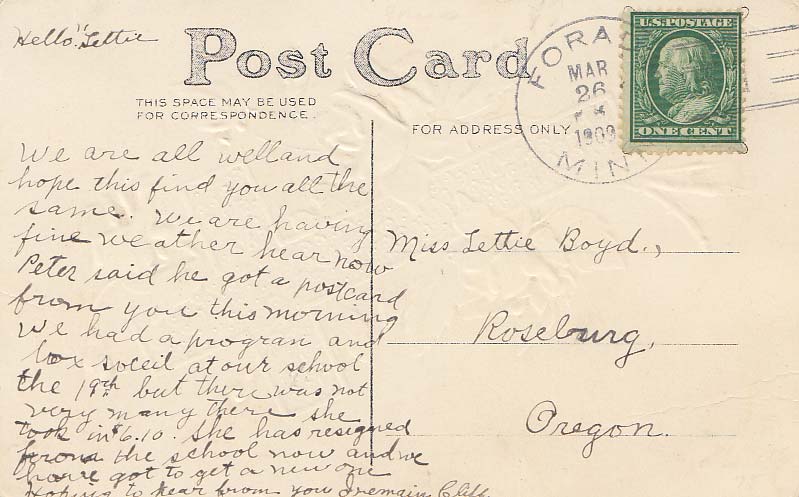 Hello "Lettie
Post Card
THIS SPACE MAY BE USED
FOR CORRESPONDENCE.
FOR ADDRESS ONLY.
U.S. POSTAGE
ONE CENT
MAR
26
1909
MIN
We are all well and
hope this find you all the
same. We are having
fine weather hear now
Peter said he got a postcard
from you this morning
We had a progran and
box soceil at our school
the 19th but there was not
very many there she
took in $6.10. she has resigned
from the school now and we
have got to get a new one
Hoping to hear from you I remain Cliff.
Miss Lettie Boyd.,
Roseburg,
Oregon.